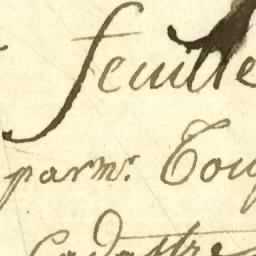 feuille
par mr. Tou
Cadastre